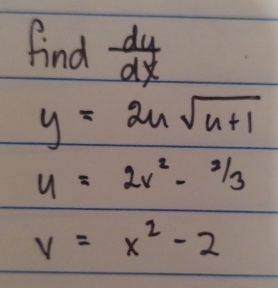 find dy/dx
y = 2u √(u+1)
u = 2v² - 2/3
v = x² - 2